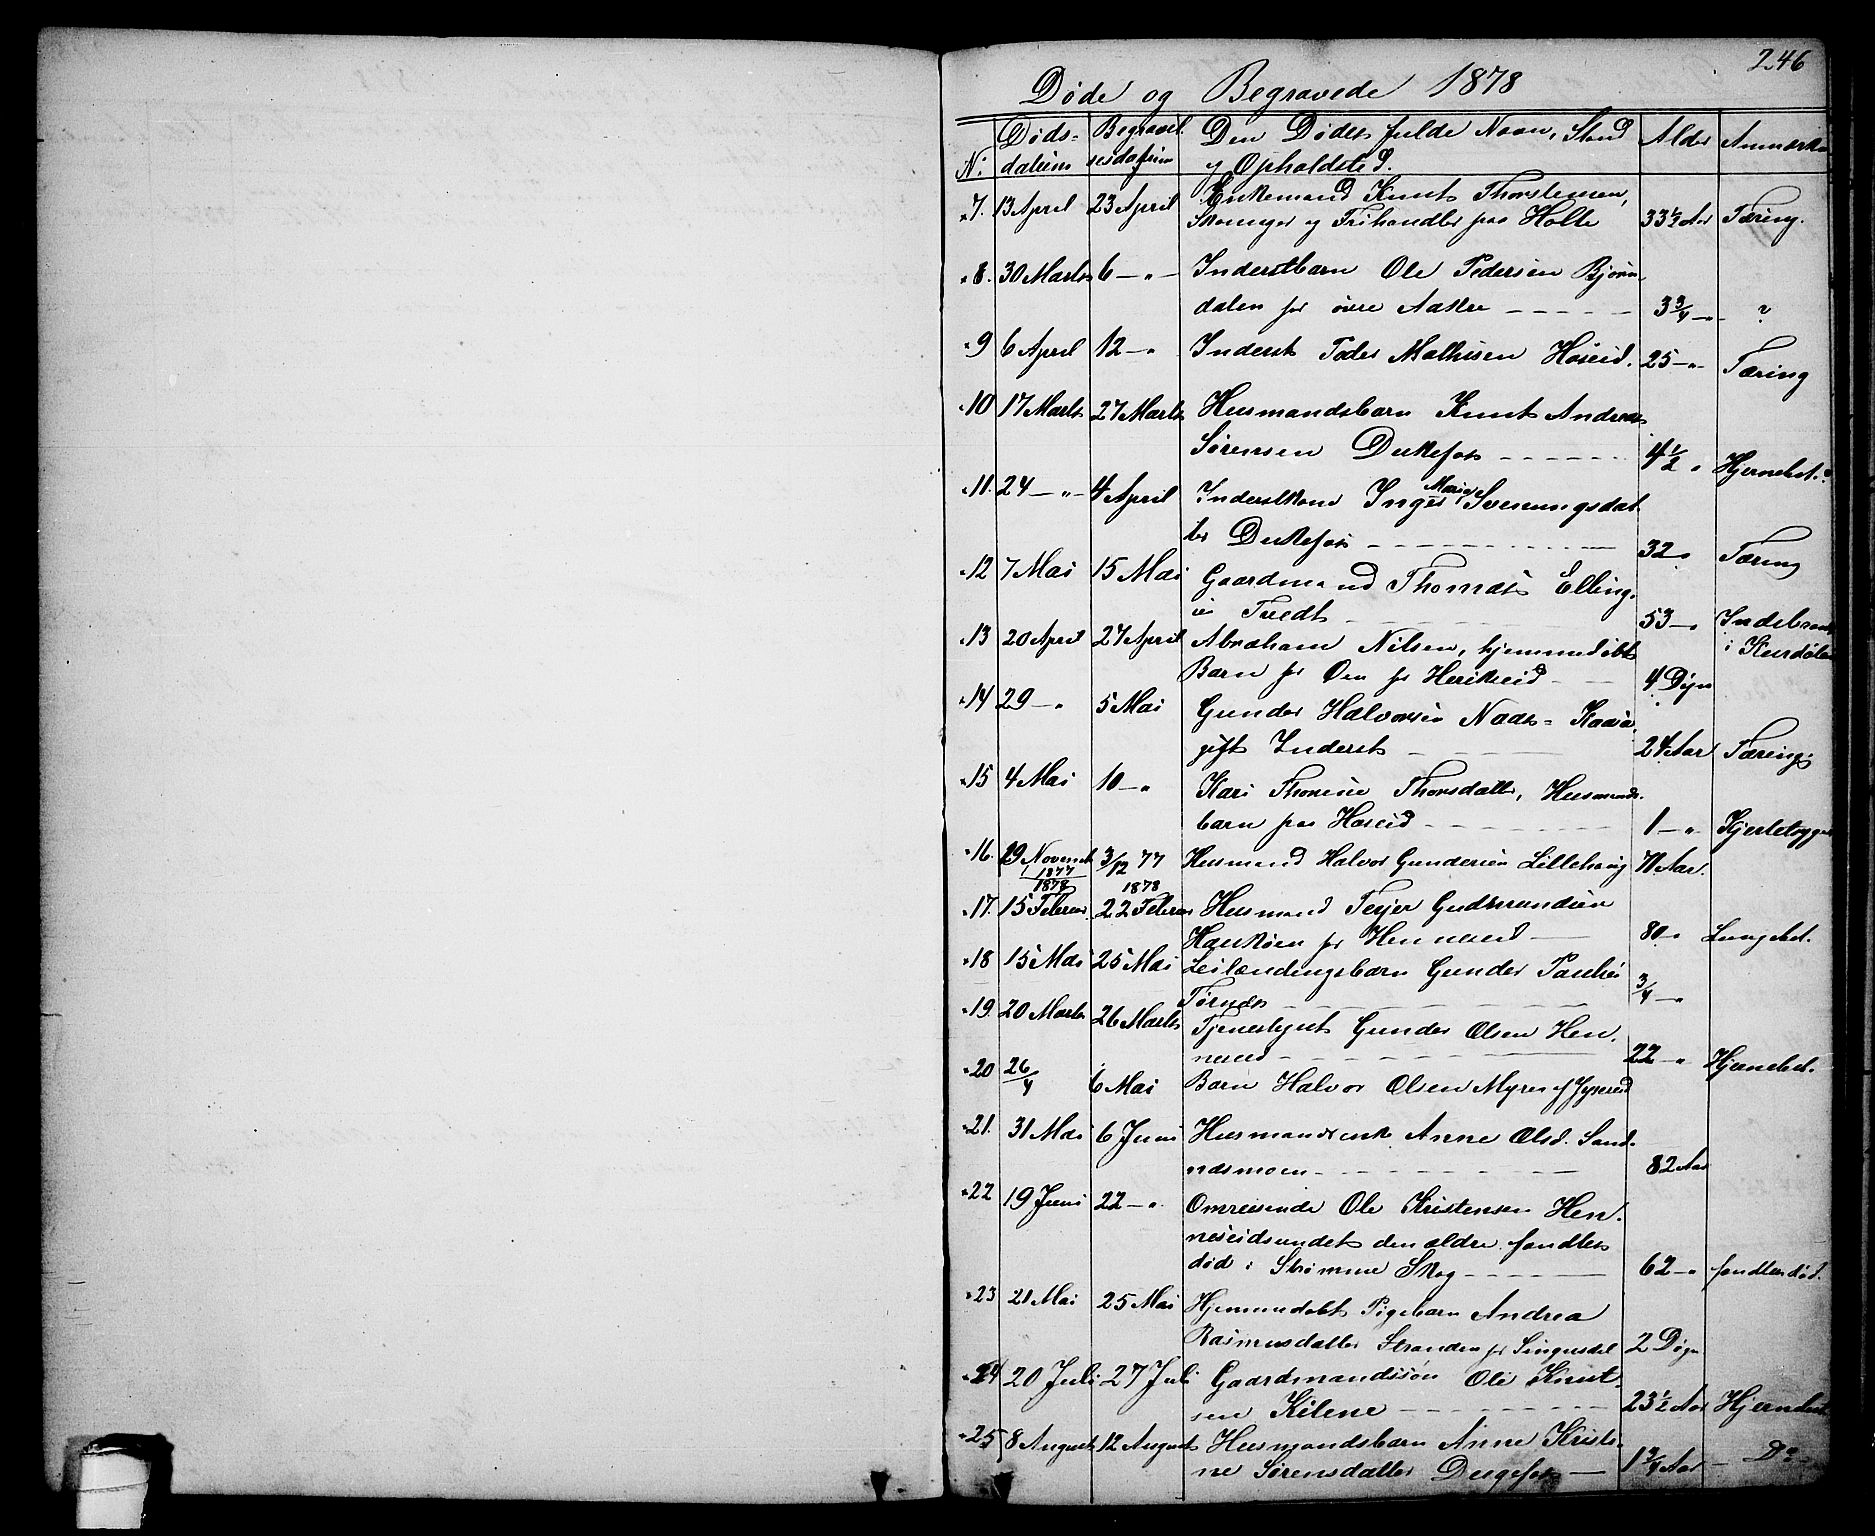 246
Døde og Begravede 1878
No: Døds- datum Begravel sesdatum Den Dødes fulde Navn, Stand
og Opholdsted. Alder Anmærkn
7. 13 April 23 April Enkemand Knut Thorstensen,
og Frihandler paa Holte 33½ Aar Tæring.
8. 30 Marts 6 — " — Inderstbarn Ole Pedersen Bjørn
dalen for øvre Aakre 3 3/4 — " — ?
9 6 April 12 — " Inderst Mathisen Høseid. 25 — " — Tæring
10 17 Marts 27 Marts Husmandsbarn Knut Andreas
Sørensen Dukefos 4½ " Hjernebet.
11. 24 — " — 4 April Inderstkone Inger Maria Svenungsdat
ter Dukefos 32 " Tæring
12 7 Mai 15 Mai Gaardmand Thomas Elling.
Tvedt 53 — " Indebrændt
13 20 April 27 April Abraham Nilsen, hjemmedøbt i
Barn fr Oen fr 4 Døgn
14 29 — " 5 Mai Gunder Halvorsen Kaasa
gift Inderst 24 Aar Tæring
15 4 Mai 10 — " Kari Thorine Thorsdatter, Husmands
barn paa Høseid 1 — "
16. 19 Novemb 1877 3/12 77 Husmand Halvor Gundersen Lillehaug 71 Aar.
1878 1878
17. 15 Februar 22 Februar Husmand Terjer Gudmundsen
fr Henneseid 80 — " Lungebet.
18 15 Mai 25 Mai Leilændingsbarn Gunder
Tørnes 3/4 — "
19. 20 Marts 26 Marts Tjenestgut Gunder Olsen Hen,
neseid 22 — " Hjernebet.
20 26/4 6 Mai Barn Halvor Olsen Myren
21. 31 Mai 6 Juni Husmandsenk Anne Olsd. Sand-
næsmoen 82 Aar
22 19 Juni 22 — " Omreisende Ole Kristensen Hen,
neseidsundet den ældre. fandtes
død i Strømme Skog 62 — " fandtes død.
23 21 Mai 25 Mai Hjemmedøbt Pigebarn Andrea
Rasmusdatter Stranden fr 2 Døgn
24 20 Juli 27 Juli Gaardmandssøn Ole Knut-
sen Kilene 23½ Aar Hjernebet
25 8 August 12 August Husmandsbarn Anne Kristi-
ne Sørensdatter Dugefos 1 3/4 Aar — Do